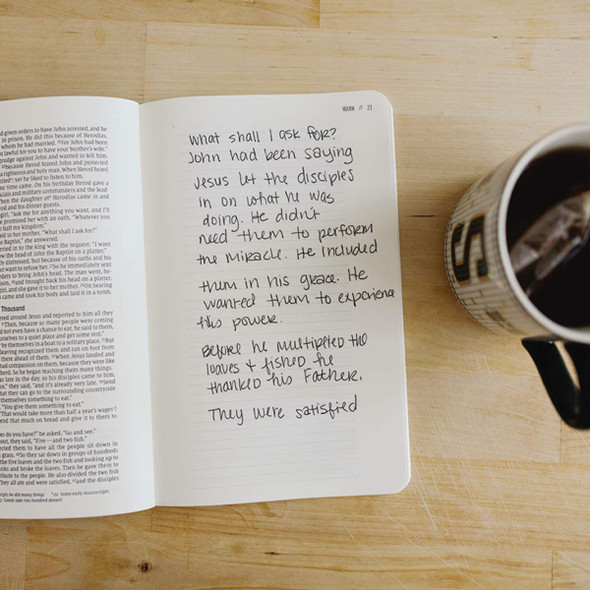 given orders to have John arrested, and he
in prison. He did this because of Herodias,
whom he had married. For John had been
lawful for you to have your brother's wife."
grudge against John and wanted to kill him.
because Herod feared John and protected
a righteous and holy man. When Herod heard
yet he liked to listen to him.
time came. On his birthday Herod gave a
and military commanders and the lead-
the daughter of Herodias came in and
and his dinner guests.
girl, "Ask me for anything you want, and I'll
promised her with an oath, "Whatever you
half my kingdom."
to her mother, "What shall I ask for?"
Baptist," she answered.
in to the king with the request: "I want
the head of John the Baptist on a platter."
distressed, but because of his oaths and his
not want to refuse her. So he immediately sent
orders to bring John's head. The man went, be-
and brought back his head on a platter.
girl, and she gave it to her mother. On hearing
came and took his body and laid it in a tomb.
Thousand
around Jesus and reported to him all they
Then, because so many people were coming
not even have a chance to eat, he said to them,
to a quiet place and get some rest."
by themselves in a boat to a solitary place. But
leaving recognized them and ran on foot from
there ahead of them. When Jesus landed and
had compassion on them, because they were like
So he began teaching them many things.
late in the day, so his disciples came to him.
place," they said, "and it's already very late. Send
that they can go to the surrounding countryside
themselves something to eat."
"You give them something to eat."
"That would take more than half a year's wages!
spend that much on bread and give it to them to
do you have?" he asked. "Go and see."
out, they said, "Five — and two fish."
them to have all the people sit down in
grass. So they sat down in groups of hundreds
the five loaves and the two fish and looking up to
thanks and broke the loaves. Then he gave them to
to the people. He also divided the two fish
They all ate and were satisfied, and the disciples
he did many things Some early manuscripts
Greek take two hundred denarii
MARK // 21
What shall I ask for?
John had been saying
Jesus let the disciples
in on what he was
doing. He didn't
need them to perform
the miracle. He included
them in his grace. He
wanted them to experience
his power.
Before he multiplied the
loaves + fished he
thanked his Father.
They were satisfied
S